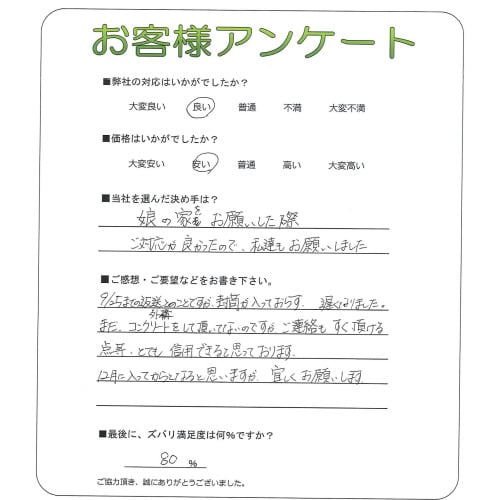 お客様アンケート
■弊社の対応はいかがでしたか？
大変良い 良い 普通 不満 大変不満
■価格はいかがでしたか？
大変安い 安い 普通 高い 大変高い
■当社を選んだ決め手は？
娘の家をお願いした際
ご対応が良かったので、私達もお願いしました
■ご感想・ご要望などをお書き下さい。
9/25までの返送とのことですが、封筒が入っておらず、遅くなりました。
まだ、外構コンクリートをして頂いてないのですが、ご連絡もすぐ頂ける
点等、とても信用できると思っております。
12月に入ってからとなると思いますが、宜しくお願いします
■最後に、ズバリ満足度は何％ですか？
80 ％
ご協力頂き、誠にありがとうございました。